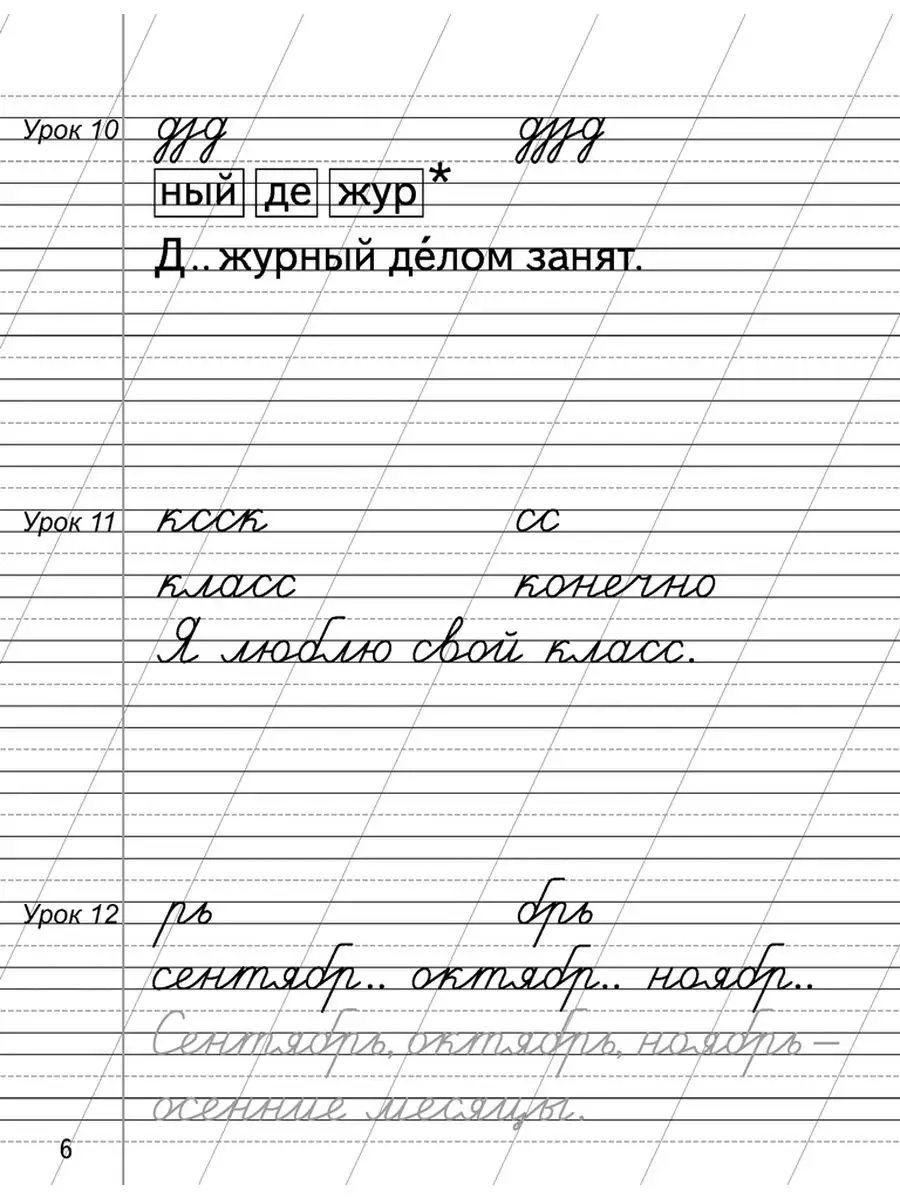 Урок 10 дзд дззд
ный де жур*
Д.. журный де́лом занят.
Урок 11 ксск сс
класс конечно
Я люблю свой класс.
Урок 12 рь брь
сентябр.. октябр.. ноябр..
Сентябрь, октябрь, ноябрь —
осенние месяцы.
6